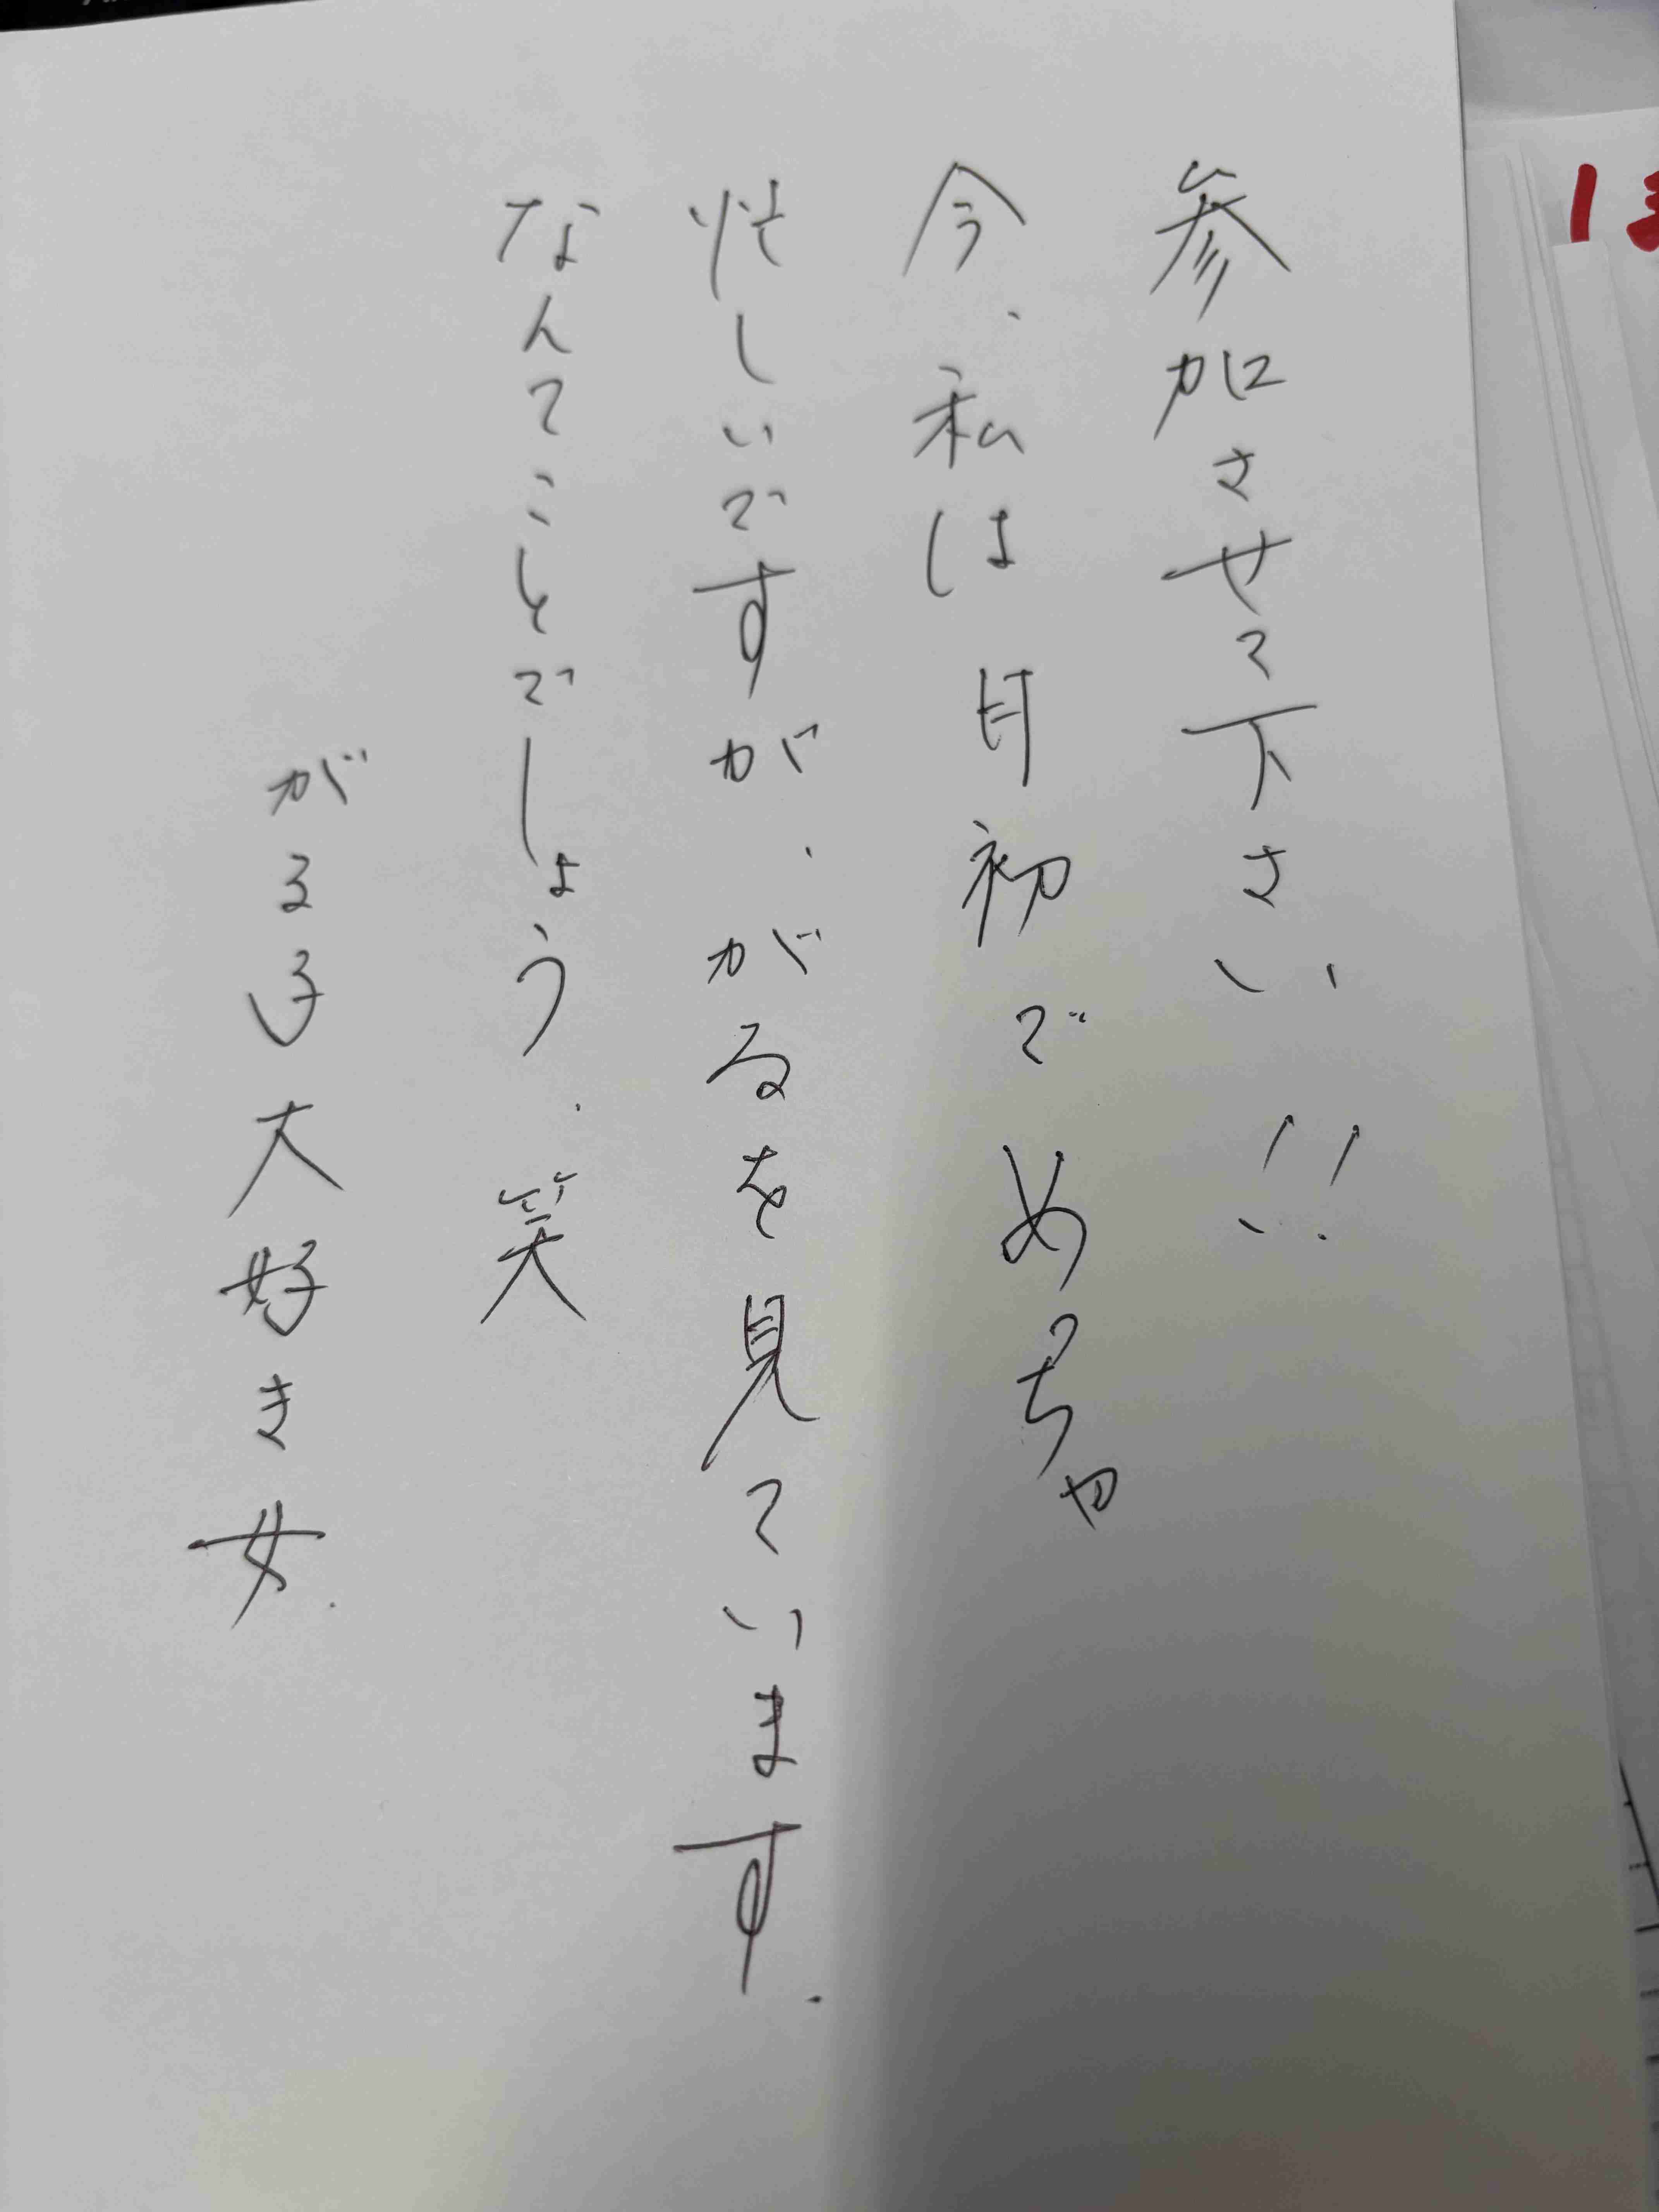 参加させて下さい!!
今、私は月初でめっちゃ
忙しいですが、がるを見ています。
なんてことでしょう、笑
がる子大好き女.
1